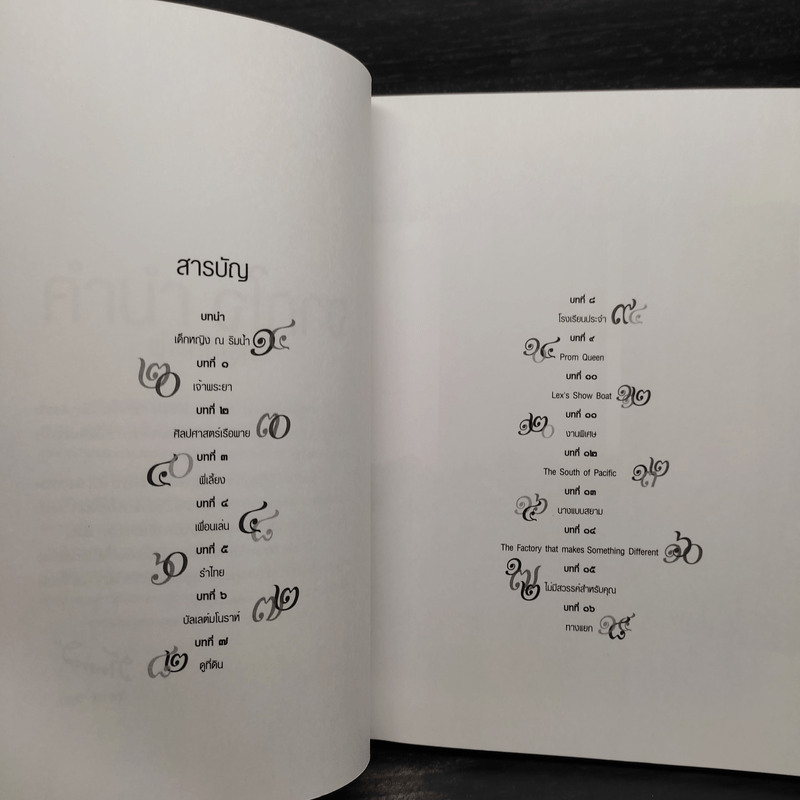 สารบัญ
บทนำ
เด็กหญิง ณ ริมน้ำ ๑๔
บทที่ ๑
๒๐ เจ้าพระยา
บทที่ ๒
ศิลปศาสตร์เรือพาย ๓๐
บทที่ ๓
๔๐ พี่เลี้ยง
บทที่ ๔
เพื่อนเล่น ๔๘
บทที่ ๕
๖๐ รำไทย
บทที่ ๖
บัลเลต์มโนราห์ ๗๒
บทที่ ๗
๘๒ ดูที่ดิน
บทที่ ๘
โรงเรียนประจำ ๙๔
บทที่ ๙
Prom Queen
บทที่ ๑๐
Lex's Show Boat
บทที่ ๑๑
งานพิเศษ
บทที่ ๑๒
The South of Pacific
บทที่ ๑๓
นางแบบสยาม
บทที่ ๑๔
The Factory that makes Something Different
บทที่ ๑๕
ไม่มีสวรรค์สำหรับคุณ
บทที่ ๑๖
ทางแยก